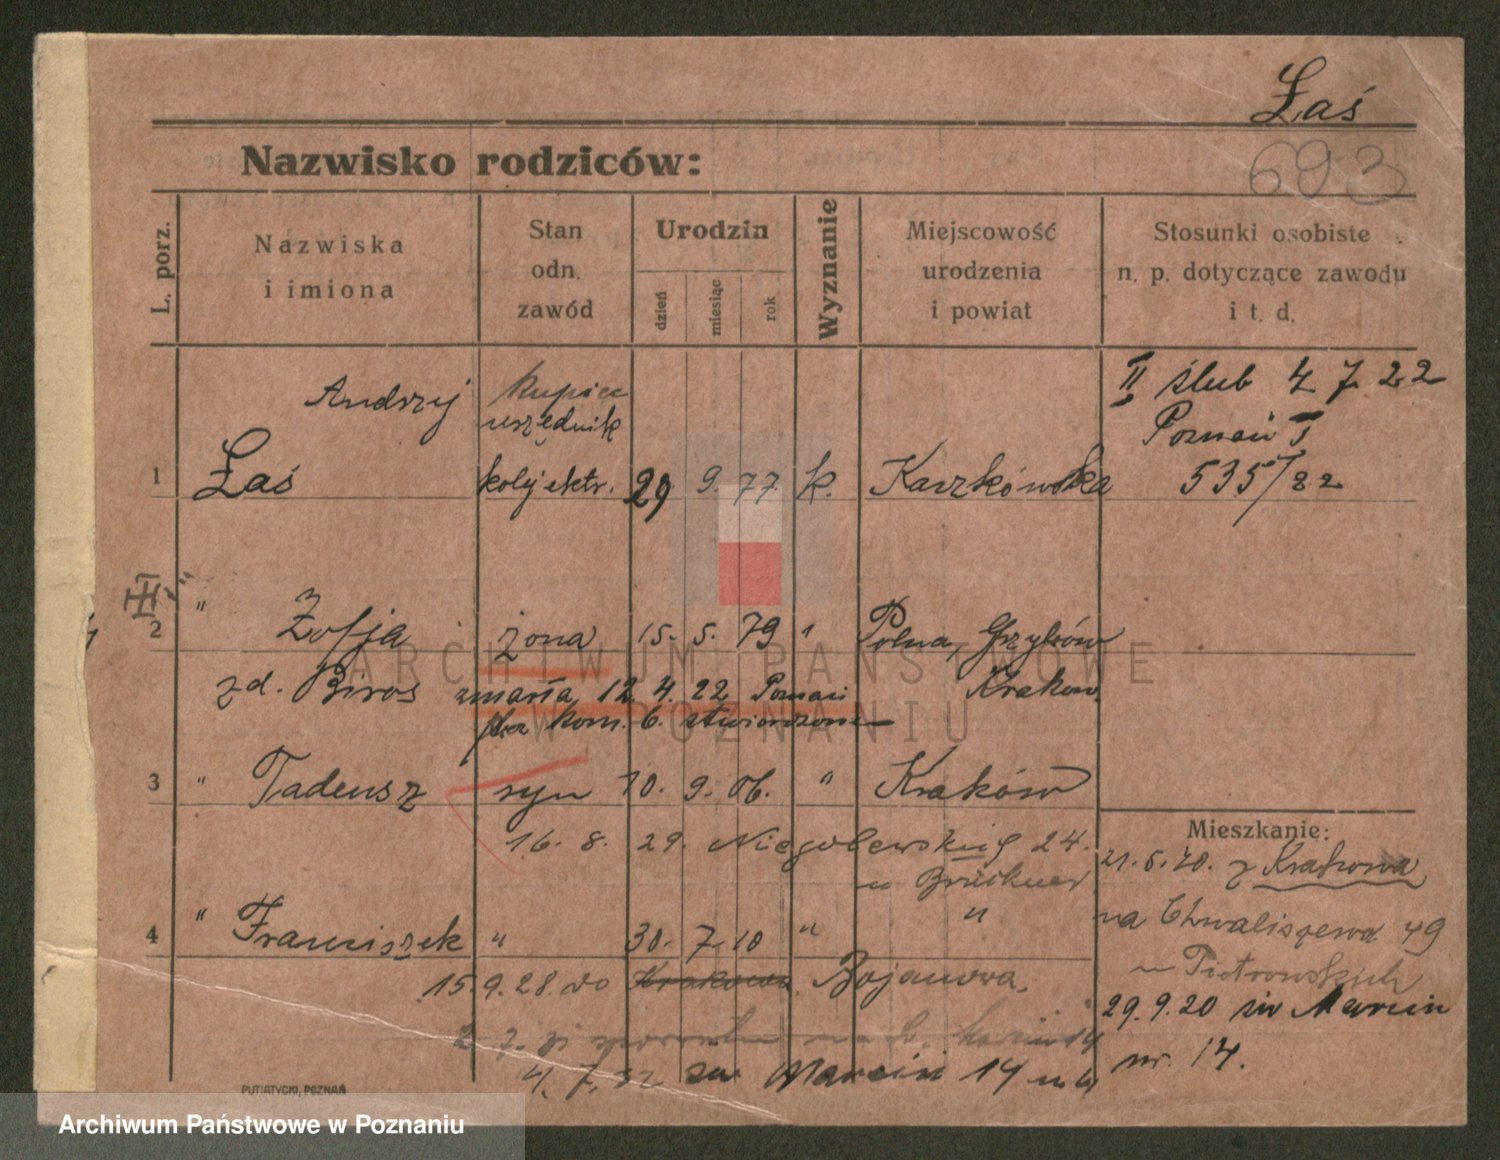 Łaś
693
Nazwisko rodziców:
L. porz.
Nazwiska
i imiona
Stan
odn.
zawód
Urodzin
dzień
miesiąc
rok
Wyznanie
Miejscowość
urodzenia
i powiat
Stosunki osobiste
n. p. dotyczące zawodu
i t. d.
II ślub 4 7 22
Poznań I
535/22
Andrzej kupiec
urzędnik
1 Łaś 29 9. 77. k.
2 " Zofja żona 15. 5. 79 "
zd. Biros zmarła 12. 4. 22 Poznań Kraków
3 " Tadeusz syn 10. 9. 06. " Kraków
16. 8. 29. Niegolewskich 24.
4 " Franciszek " 30. 7. 10 " "
15. 9. 28. do Krakowa Bojanowa.
św Marcin 14
Mieszkanie:
21. 5. 20. z Krakowa
na Chwaliszewo 49
u Piotrowskich
29. 9. 20 św Marcin
nr. 14.
PUTIATYCKI, POZNAŃ
ARCHIWUM PAŃSTWOWE
W POZNANIU
Archiwum Państwowe w Poznaniu